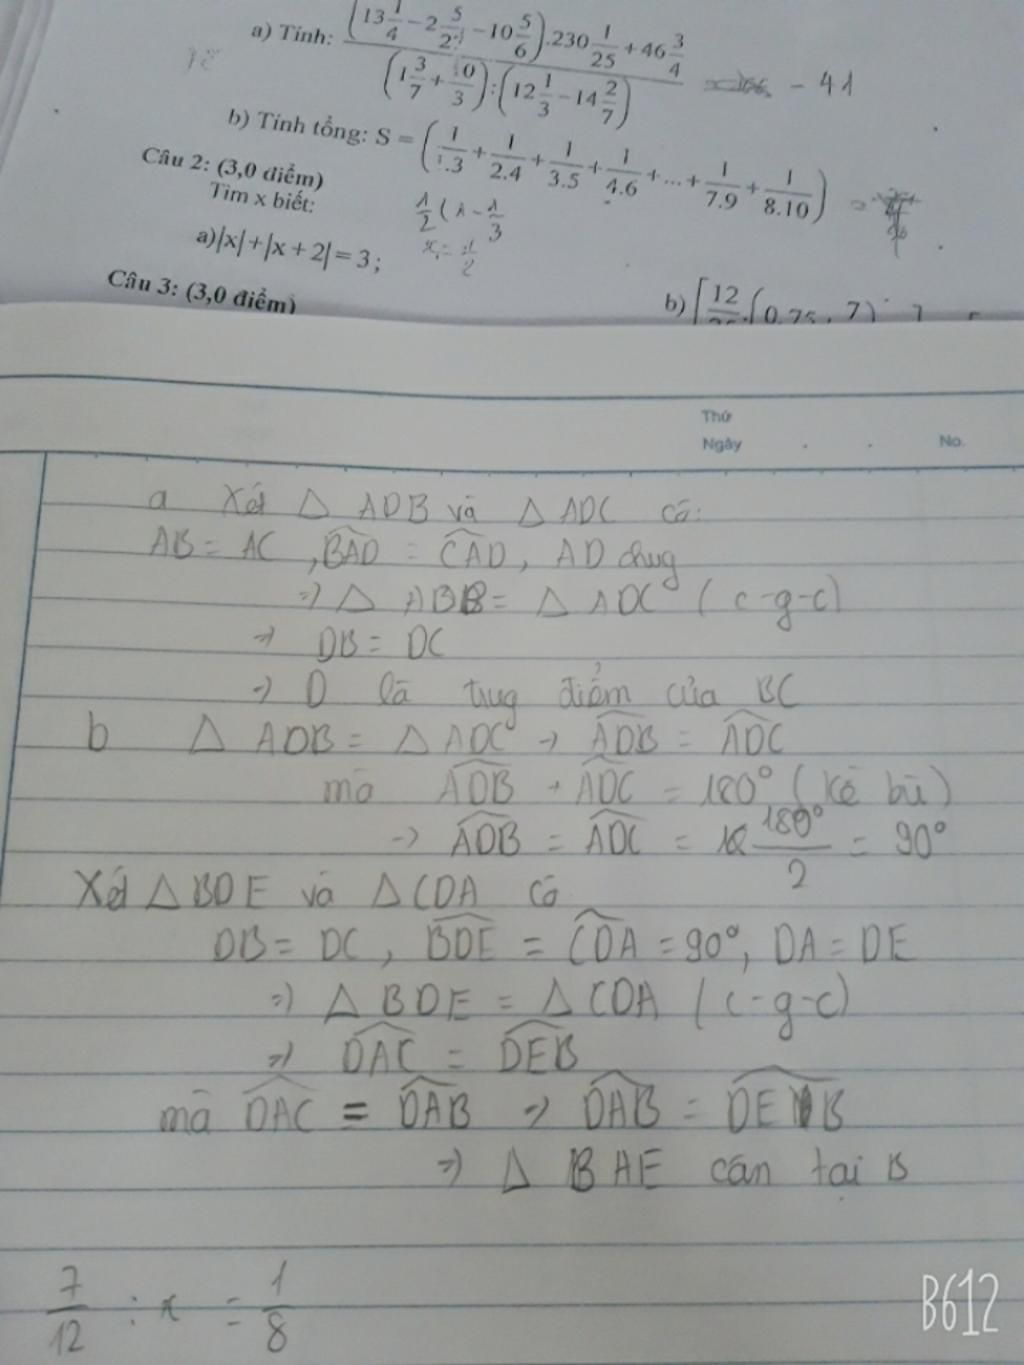 a) Tính: (13 1/4 − 2 5/2 − 10 5/6).230 1/25 + 46 3/4
(1 3/7 + 10/3) : (12 1/3 − 14 2/7) − 41
b) Tính tổng: S = (1/1.3 + 1/2.4 + 1/3.5 + 1/4.6 + ... + 1/7.9 + 1/8.10) =
Câu 2: (3,0 điểm)
Tìm x biết:
1/2 (1 − 1/3
a)|x|+|x + 2| = 3 ;
b) [12
(0,75
7)
Câu 3: (3,0 điểm)
Thứ
Ngày
No.
a Xét △ ADB và △ ADC có:
AB = AC , BAD = CAD, AD chug
=> △ ABB = △ ADC ( c-g-c)
=> DB = DC
=> D là trug điểm của BC
b △ ADB = △ ADC → ADB = ADC
mà ADB + ADC = 180° ( kề bù)
=> ADB = ADC = 180°/2 = 90°
Xét △ BDE và △ CDA có
DB = DC, BDE = CDA = 90°, DA = DE
=> △ BDE = △ CDA ( c-g-c)
=> DAC = DEB
mà DAC = DAB => DAB = DEB
=> △ BAE cân tại B
7/12 : x = 1/8
B612